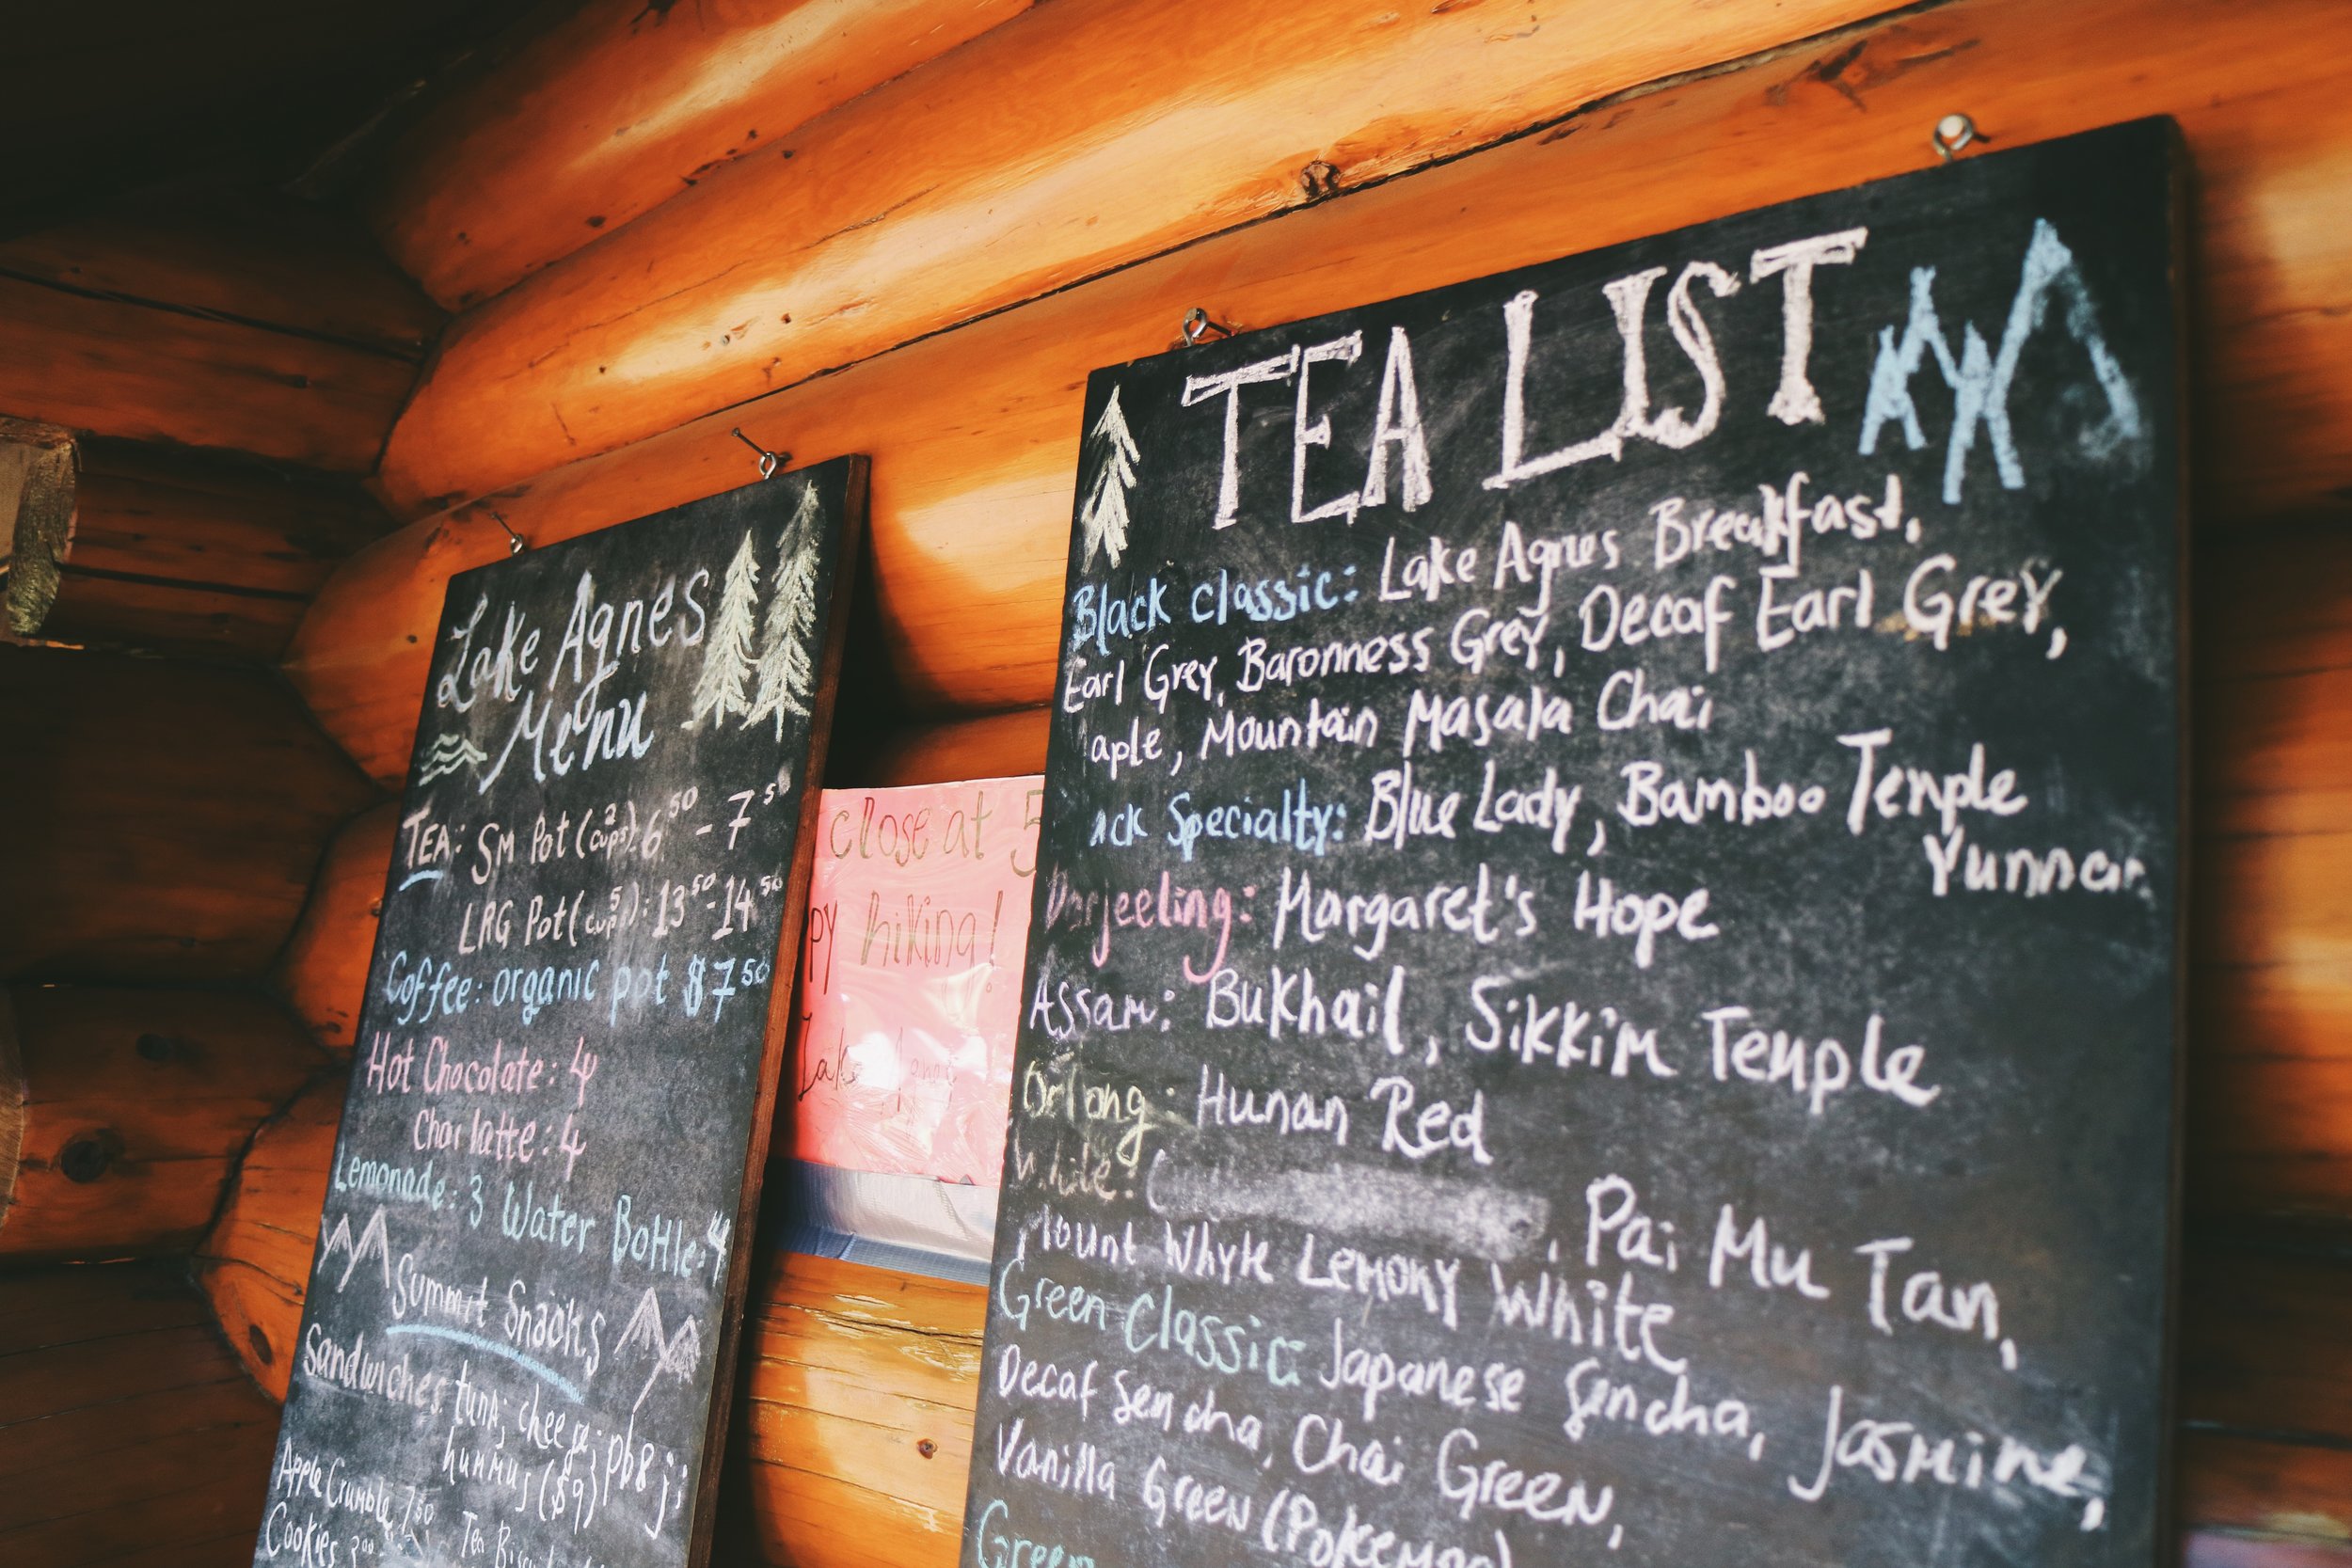 Lake Agnes
Menu
TEA: SM Pot (2 cups): 6.50 - 7.50
LRG Pot (5 cups): 13.50 - 14.50
Coffee: organic pot $7.50
Hot Chocolate: 4
Chai latte: 4
Lemonade: 3 Water Bottle: 4
Summit Snacks
Sandwiches: tuna; cheese; pb & j;
hummus ($9)
Apple Crumble 7.50
Cookies
Tea
close at 5
py hiking!
Lake
TEA LIST
Black classic: Lake Agnes Breakfast,
Earl Grey, Baronness Grey, Decaf Earl Grey,
aple, Mountain Masala Chai
ack Specialty: Blue Lady, Bamboo Temple
Yunnan
Darjeeling: Margaret's Hope
Assam: Bukhail, Sikkim Temple
Oolong: Hunan Red
White: , Pai Mu Tan,
Mount Whyte Lemony White
Green Classic: Japanese Sencha, Jasmine,
Decaf Sencha, Chai Green,
Vanilla Green (Pokemon)
Green